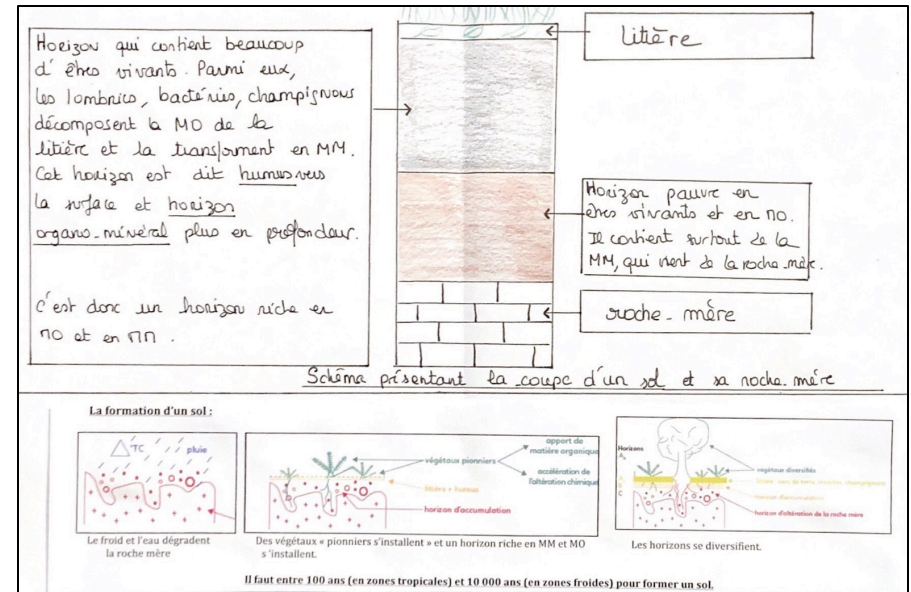 Horizon qui contient beaucoup
d'êtres vivants. Parmi eux,
les lombrics, bactéries, champignons
décomposent la MO de la
litière et la transforment en MM.
Cet horizon est dit humus vers
la surface et horizon
organo-minéral plus en profondeur.
C'est donc un horizon riche en
MO et en MM.
litière
Horizon pauvre en
êtres vivants et en MO.
Il contient surtout de la
MM, qui vient de la roche-mère.
roche-mère
Schéma présentant la coupe d'un sol et sa roche-mère
La formation d'un sol :
△T°C
pluie
Le froid et l'eau dégradent
la roche mère
végétaux pionniers
apport de
matière organique
accélération de
l'altération chimique
litière + humus
horizon d'accumulation
Des végétaux « pionniers s'installent » et un horizon riche en MM et MO
s'installent.
Horizons
végétaux diversifiés
horizon d'accumulation
horizon d'altération de la roche mère
Les horizons se diversifient.
Il faut entre 100 ans (en zones tropicales) et 10 000 ans (en zones froides) pour former un sol.